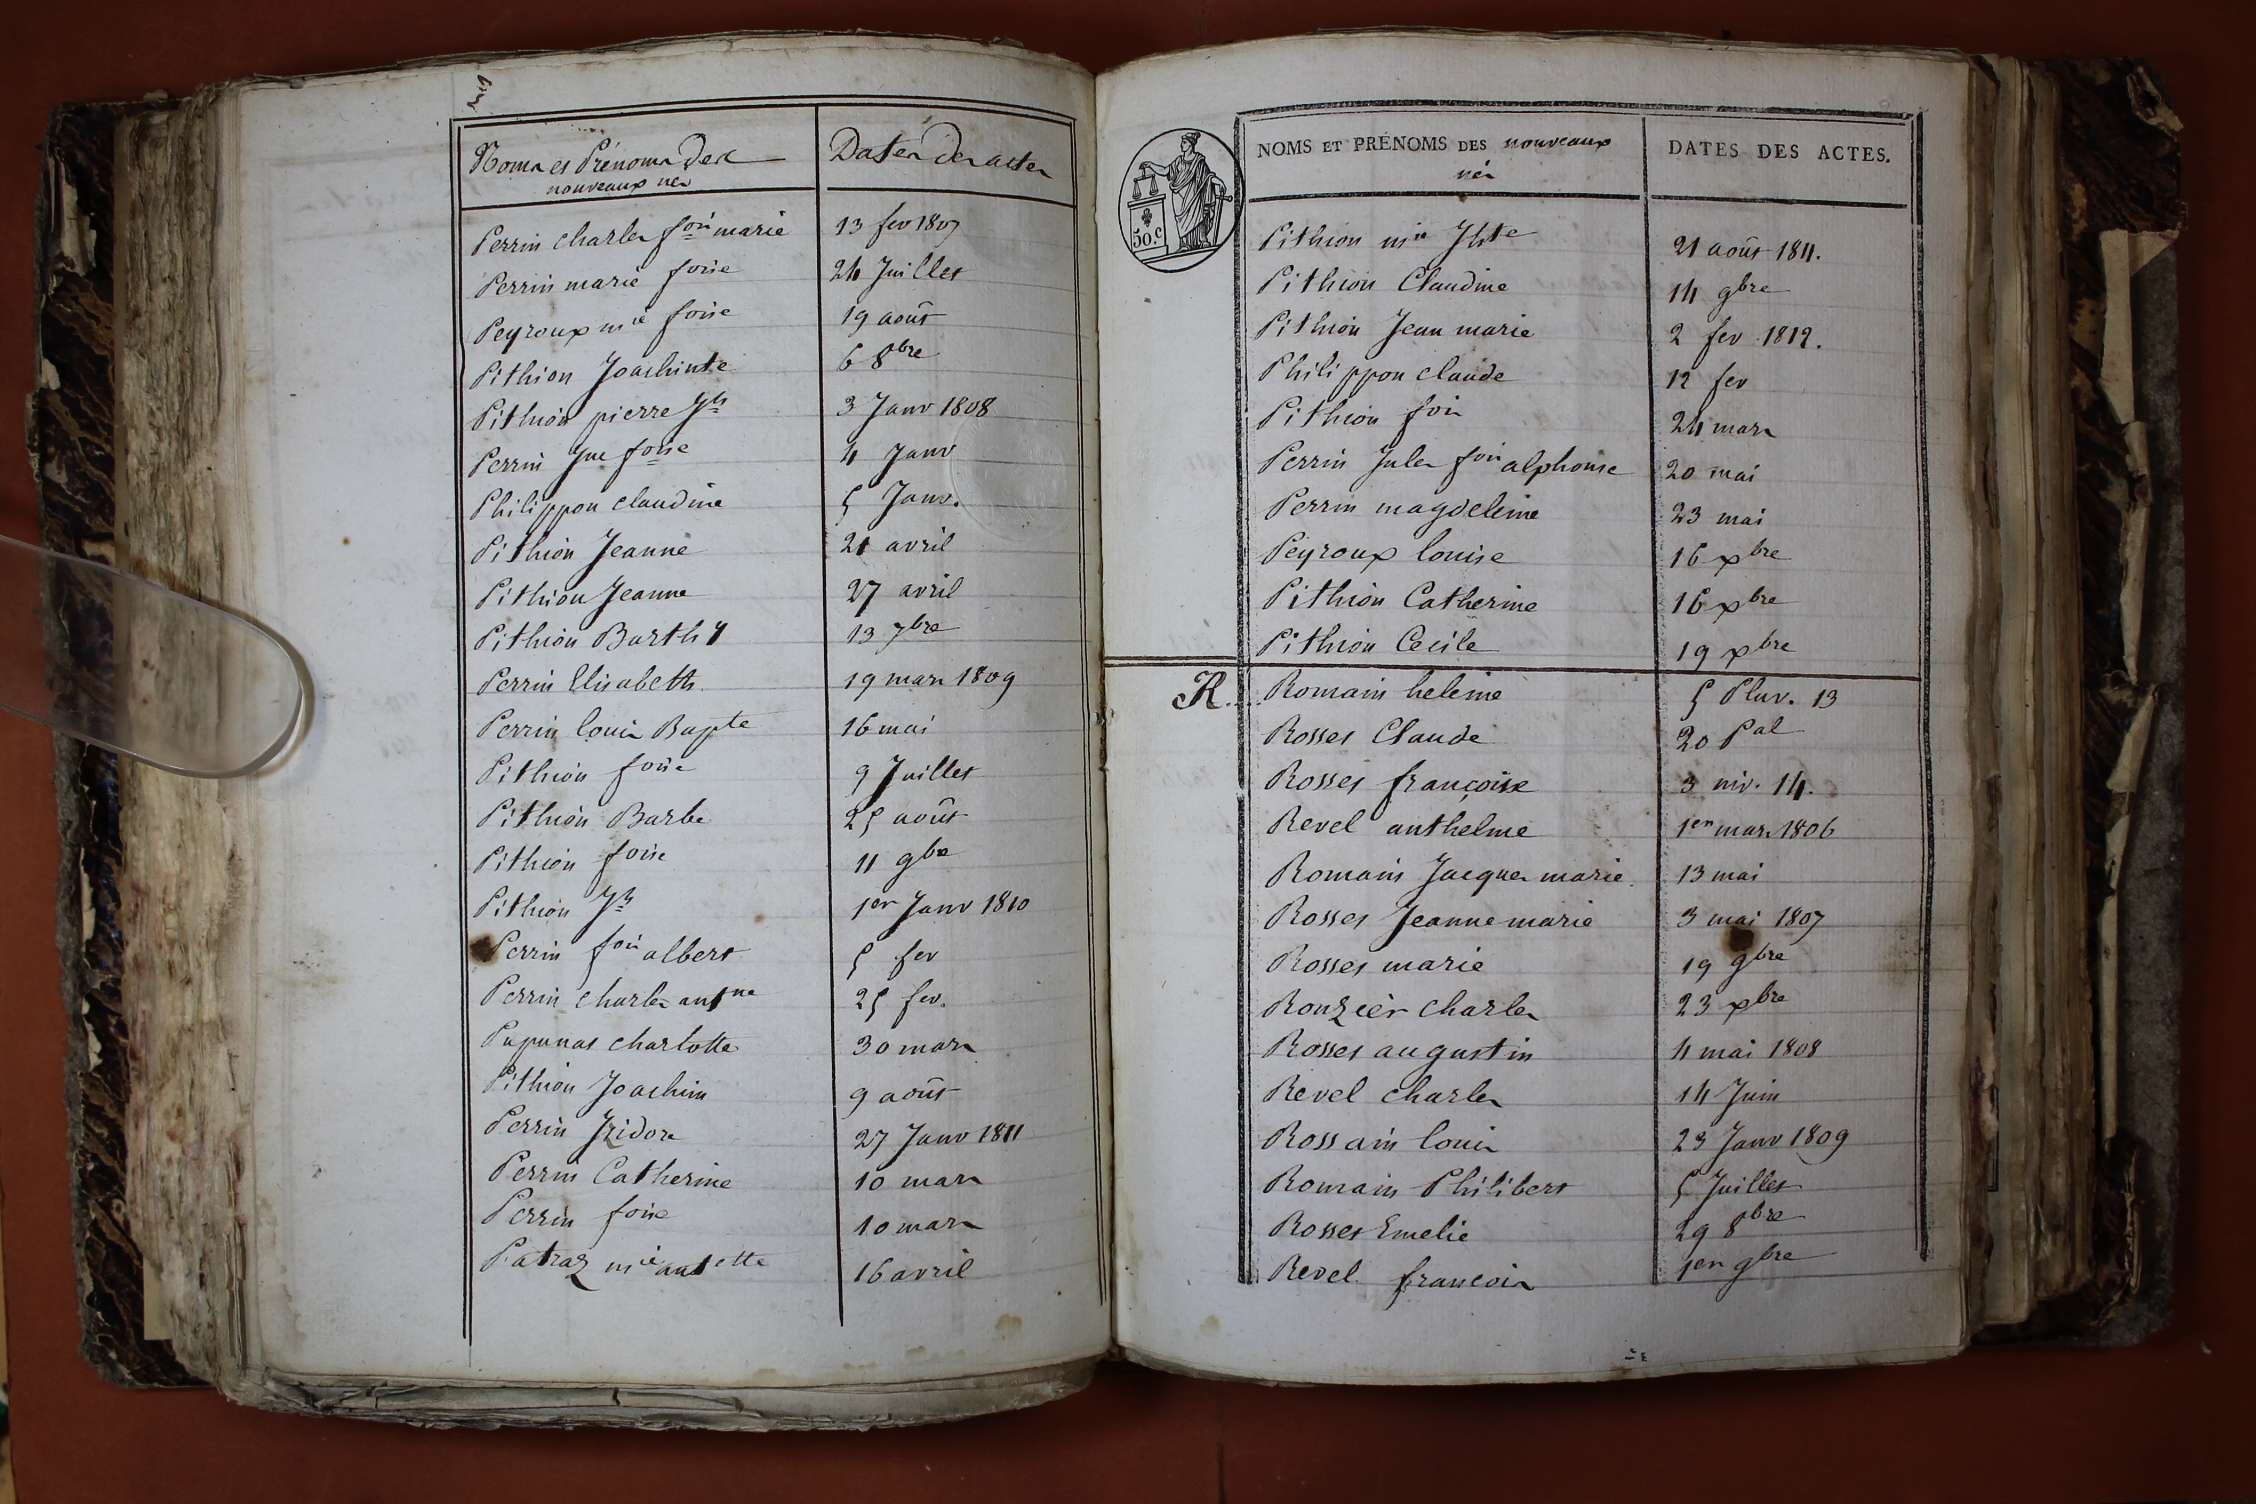 Noms et Prénoms des
nouveaux nés
Dates des actes
Perrin charles fois marie 13 fev 1807
Perrin marie foise 24 Juillet
Peyroux mie foise 19 août
Pithion Joachinte 6 8bre
Pithion pierre Jh 3 Janv 1808
Perrin Jne foise 4 Janv
Philippon claudine 5 Janv.
Pithion Jeanne 21 avril
Pithion Jeanne 27 avril
Pithion Barthy 13 7bre
Perrin Elisabeth 19 mars 1809
Perrin louis Bapte 16 mai
Pithion foise 9 Juillet
Pithion Barbe 25 août
Pithion foise 11 9bre
Pithion Jh 1er Janv 1810
Perrin fois albert 5 fev
Perrin charles antne 25 fev.
Papunat charlotte 30 mars
Pithion Joachim 9 août
Perrin Izidore 27 Janv 1811
Perrin Catherine 10 mars
Perrin foise 10 mars
Patraz mie antette 16 avril
50.c
NOMS ET PRÉNOMS DES nouveaux
nés
DATES DES ACTES.
Pithion mie Jhte 21 août 1811.
Pithion Claudine 14 9bre
Pithion Jean marie 2 fev 1812.
Philippon claude 12 fev
Pithion fois 24 mars
Perrin Jules fois alphonse 20 mai
Perrin magdeleine 23 mai
Peyroux louise 16 xbre
Pithion Catherine 16 xbre
Pithion Cecile 19 xbre
R. Romain helene 5 Pluv. 13
Rosset Claude 20 Pal
Rosset françoise 3 niv. 14.
Revel anthelme 1er mars 1806
Romain Jacques marie 13 mai
Rosset Jeanne marie 3 mai 1807
Rosset marie 19 9bre
Rouzier charles 23 xbre
Rosset augustin 4 mai 1808
Revel charles 14 Juin
Rossain louis 23 Janv 1809
Romain Philibert 5 Juillet
Rosset Emelie 29 8bre
Revel francois 1er 9bre